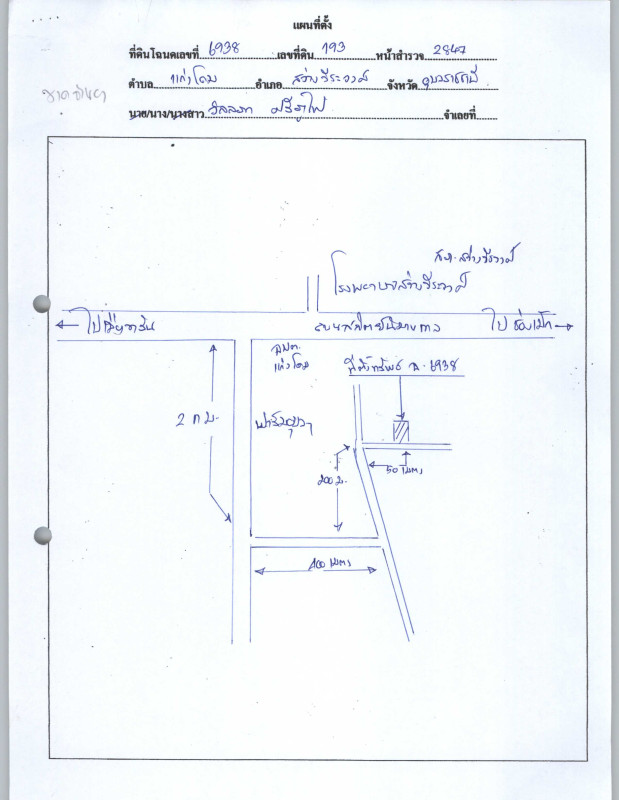 แผนที่ตั้ง
ที่ดินโฉนดเลขที่ 6938 เลขที่ดิน 193 หน้าสำรวจ 2847
ตำบล แก่งโดม อำเภอ สว่างวีระวงศ์ จังหวัด อุบลราชธานี
นาย/นาง/นางสาว จำเลยที่
สภ. สว่างวีรวงศ์
โรงพยาบาลสว่างวีระวงศ์
ไปเมืองวาริน ถนนสถิตย์นิมานกาล ไป ช่องเม็ก
อบต.
แก่งโดม
ที่ตั้งทรัพย์ ฉ. 6938
2 กม.
200 ม.
50 เมตร
400 เมตร